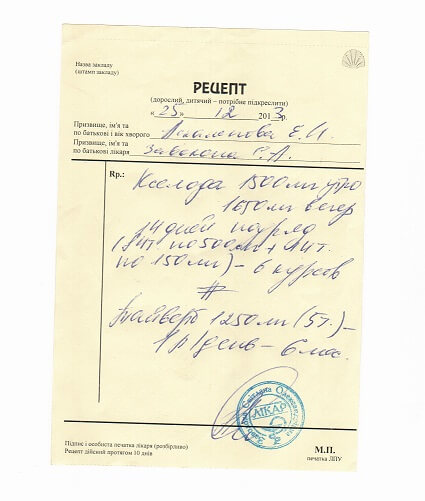 Назва закладу
(штамп закладу)
РЕЦЕПТ
(дорослий, дитячий – потрібне підкреслити)
« 25 » 12 2013 р.
Прізвище, ім'я та
по батькові і вік хворого Е. И.
Прізвище, ім'я та
по батькові лікаря С. А.
Rp.: Кселода 1500 мг утро
1650 мг вечер
14 дней подряд
по 500 мг + 1 шт.
по 150 мг) – 6 курсов
#
Тайверб 1250 мг (5т.) –
1 р/день – 6 мес.
ЛІКАР
Підпис і особиста печатка лікаря (розбірливо)
Рецепт дійсний протягом 10 днів
М.П.
печатка ЛПУ